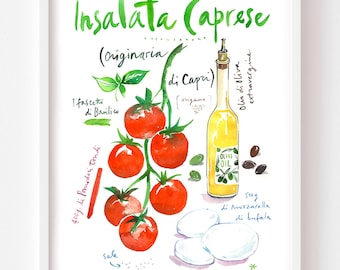 Insalata Caprese
(originaria
di Capri)
1 fascetto
di Basilico
origano
Olio di oliva
extravergine
400g di Pomodori tondi
OLIVE
OIL
500g
di mozzarella
di bufala
sale